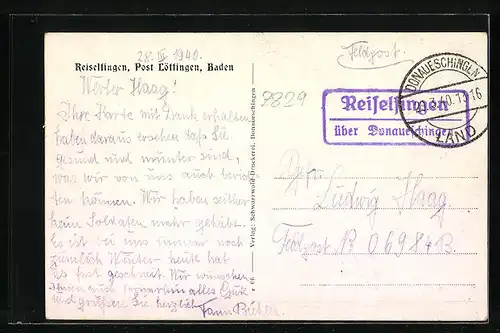 28. III 1940.
Reiselfingen, Post Löffingen, Baden
Werter Haag!
Ihre Karte mit Dank erhalten
haben daraus ersehen daß Sie
gesund und munter sind,
was wir von uns auch berich
ten können. Wir haben seither
kein Soldaten mehr gehabt.
Es ist bei uns immer noch
ziemlich Winter heute hat
es fest geschneit. Wir wünschen
Ihnen auch fernerhin alles Gute
und grüssen Sie herzlich
Verlag: Schwarzwald-Druckerei, Donaueschingen
Feldpost.
9829
Reiselfingen
über Donaueschingen
DONAUESCHINGEN
LAND
Ludwig Haag.
Feldpost Nr 06984B.